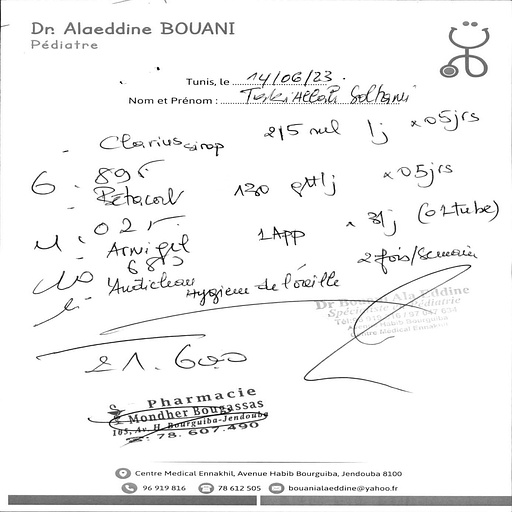 Dr. Alaeddine BOUANI
Pédiatre
Tunis, le 14/06/23.
Nom et Prénom : Soltani
- Clarius sirop 2/5 ml 1j x 05jrs
6.895
Bétacort 130 gtt/j x 05jrs
4.025
Arnigel 1 App x 3/j (01 tube)
680
Hygiène de l'oreille 2 fois/semaine
Dr Bouani Ala Eddine
Spécialiste en Pédiatrie
Avenue Habib Bourguiba
Centre Medical Ennakhil
21.600
Pharmacie
Mondher Bougassas
105, Av. H. Bourguiba-Jendouba
☎: 78. 607.490
Centre Medical Ennakhil, Avenue Habib Bourguiba, Jendouba 8100
96 919 816 78 612 505 bouanialaeddine@yahoo.fr